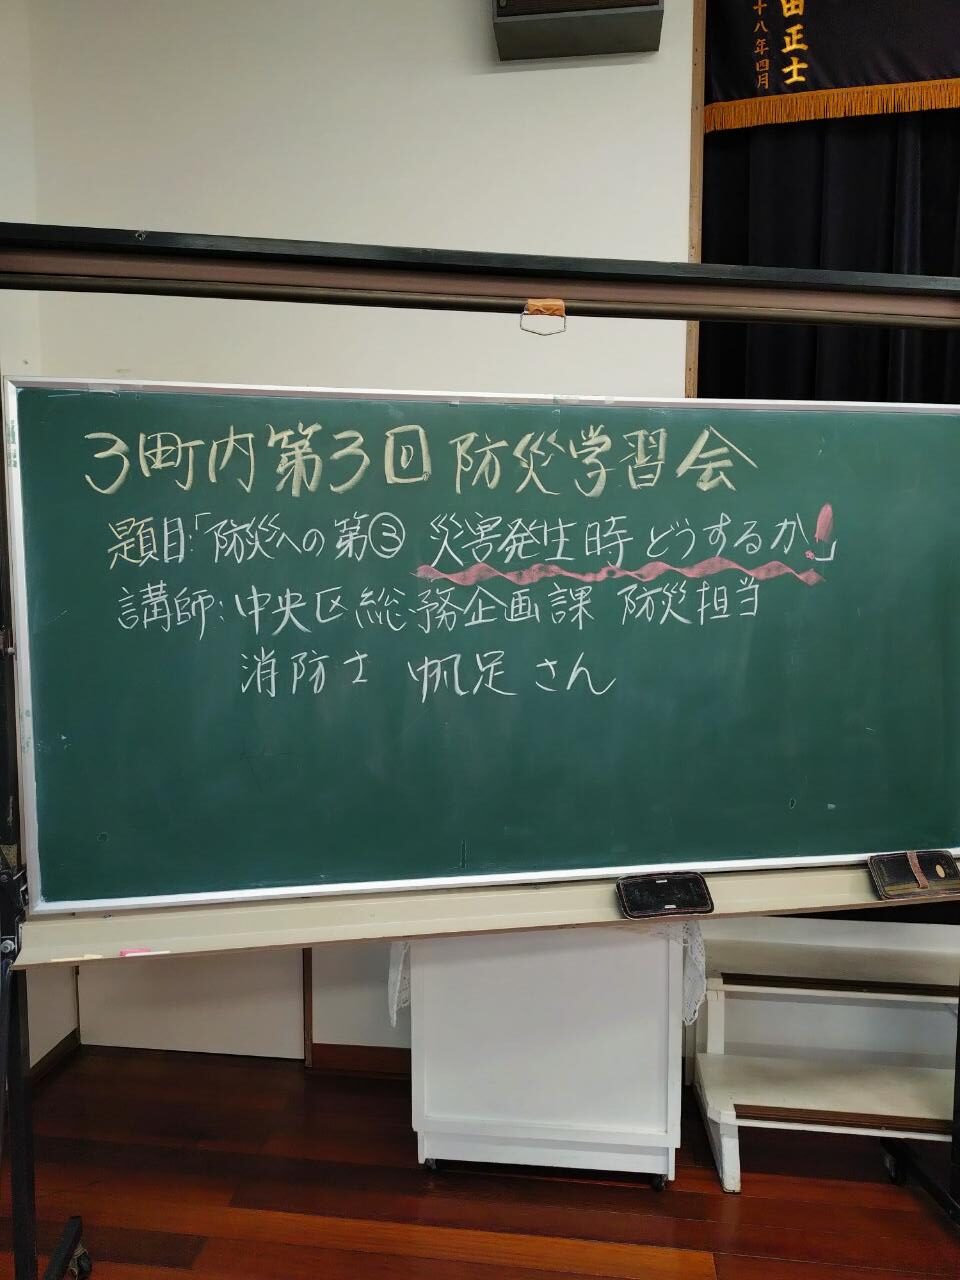 田正士
十八年四月
3町内第3回防災学習会
題目:「防災への第③ 災害発生時どうするか!」
講師:中央区総務企画課 防災担当
消防士 帆足さん